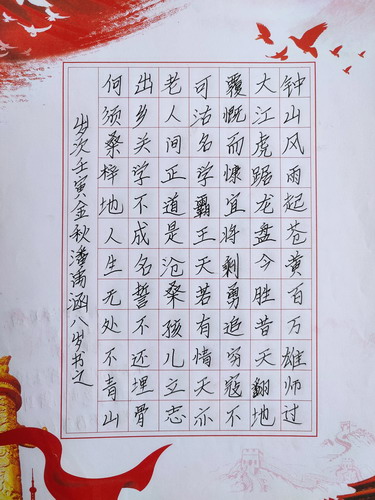 钟山风雨起苍黄百万雄师过
大江虎踞龙盘今胜昔天翻地
覆慨而慷宜将剩勇追穷寇不
可沽名学霸王天若有情天亦
老人间正道是沧桑孩儿立志
出乡关学不成名誓不还埋骨
何须桑梓地人生无处不青山
岁次壬寅金秋潘禹涵八岁书之